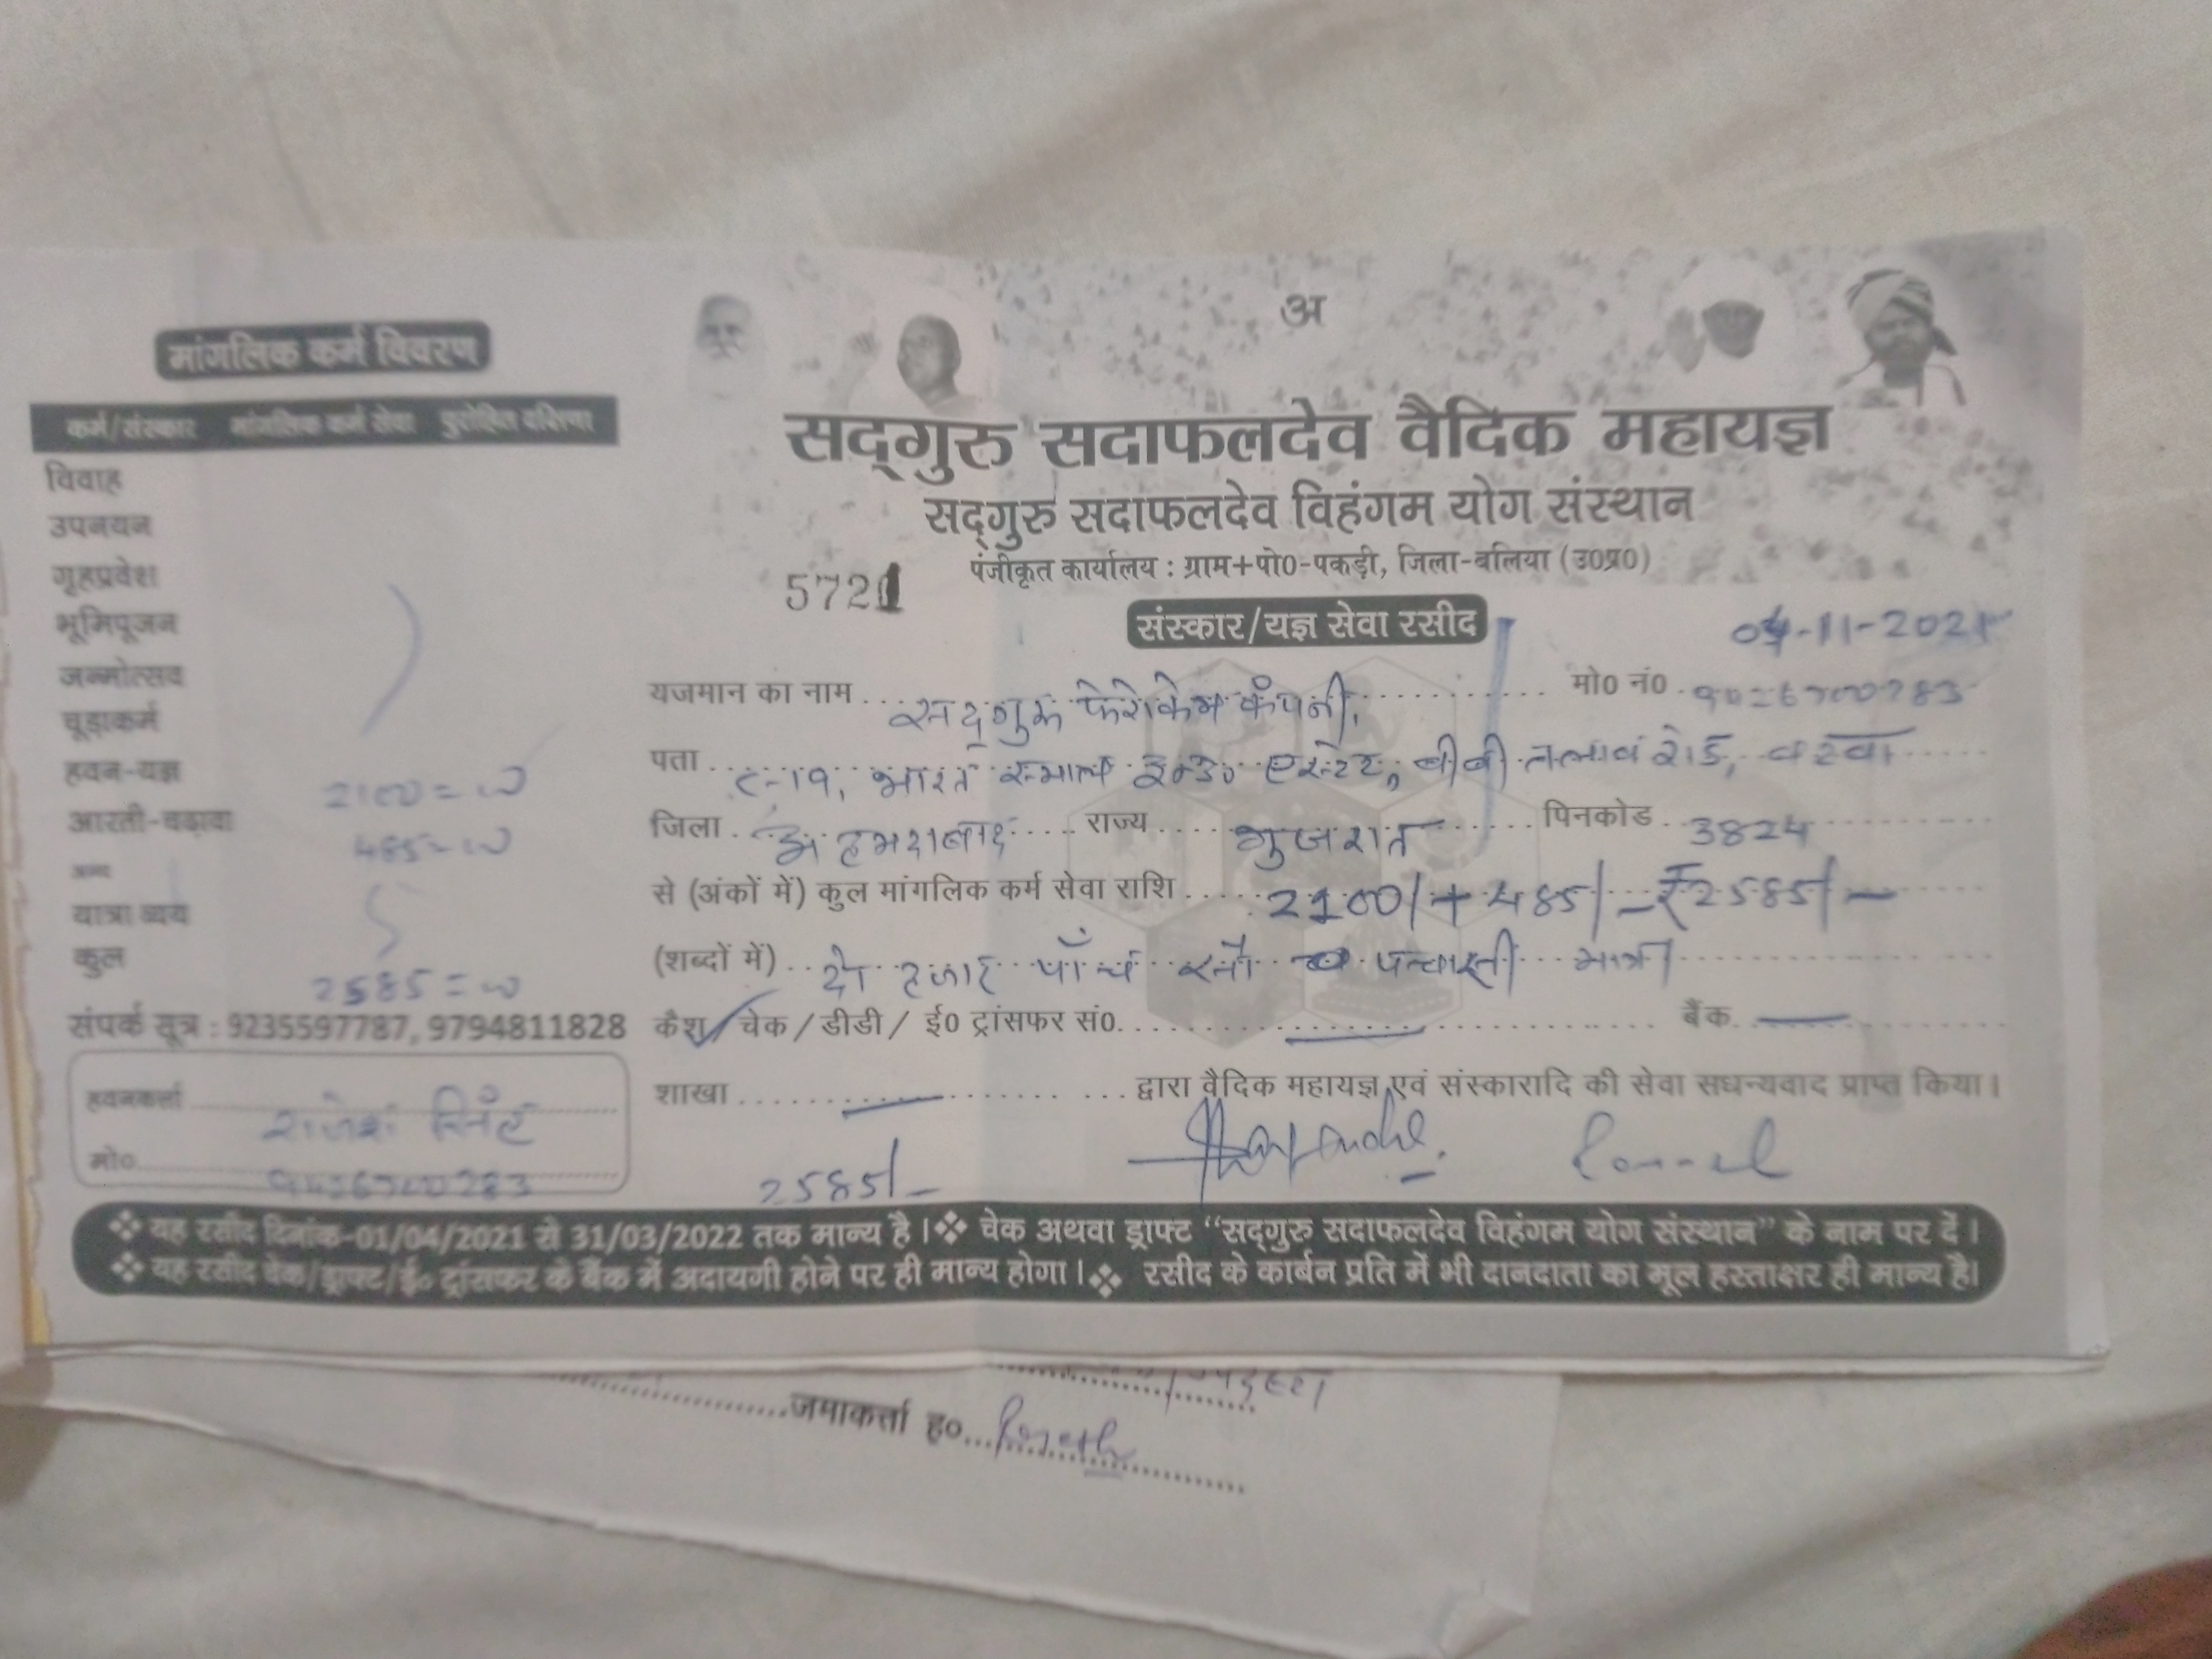 मांगलिक कर्म विवरण
कर्म/संस्कार मांगलिक कर्म सेवा पुरोहित दक्षिणा
विवाह
उपनयन
गृहप्रवेश
भूमिपूजन
जन्मोत्सव
चूड़ाकर्म
हवन-यज्ञ 2100=00
आरती-चढ़ावा 485=00
अन्य
यात्रा व्यय
कुल 2585=00
संपर्क सूत्र : 9235597787, 9794811828
हवनकर्ता राजेश सिंह
मो०
अ
सद्गुरु सदाफलदेव वैदिक महायज्ञ
सद्गुरु सदाफलदेव विहंगम योग संस्थान
पंजीकृत कार्यालय : ग्राम+पो0-पकड़ी, जिला-बलिया (उ0प्र0)
5721
संस्कार/यज्ञ सेवा रसीद
-11-2021
यजमान का नाम सद्गुरू फेरोकेम कंपनी, मो0 नं0
पता भारत स्माल इ0ड0 एस्टेट, बीबी तलाव रोड, वटवा
जिला अहमदाबाद राज्य गुजरात पिनकोड 3824
से (अंकों में) कुल मांगलिक कर्म सेवा राशि 2100/+485/-₹2585/-
(शब्दों में) दो हजार पाँच सौ पच्चासी मात्र
कैश/चेक/डीडी/ ई0 ट्रांसफर सं0 बैंक
शाखा द्वारा वैदिक महायज्ञ एवं संस्कारादि की सेवा सधन्यवाद प्राप्त किया।
2585/-
❖ यह रसीद दिनांक-01/04/2021 से 31/03/2022 तक मान्य है।❖ चेक अथवा ड्राफ्ट "सद्गुरु सदाफलदेव विहंगम योग संस्थान" के नाम पर दें।
❖ यह रसीद चेक/ड्राफ्ट/ई० ट्रांसफर के बैंक में अदायगी होने पर ही मान्य होगा।❖ रसीद के कार्बन प्रति में भी दानदाता का मूल हस्ताक्षर ही मान्य है।
जमाकर्त्ता ह०